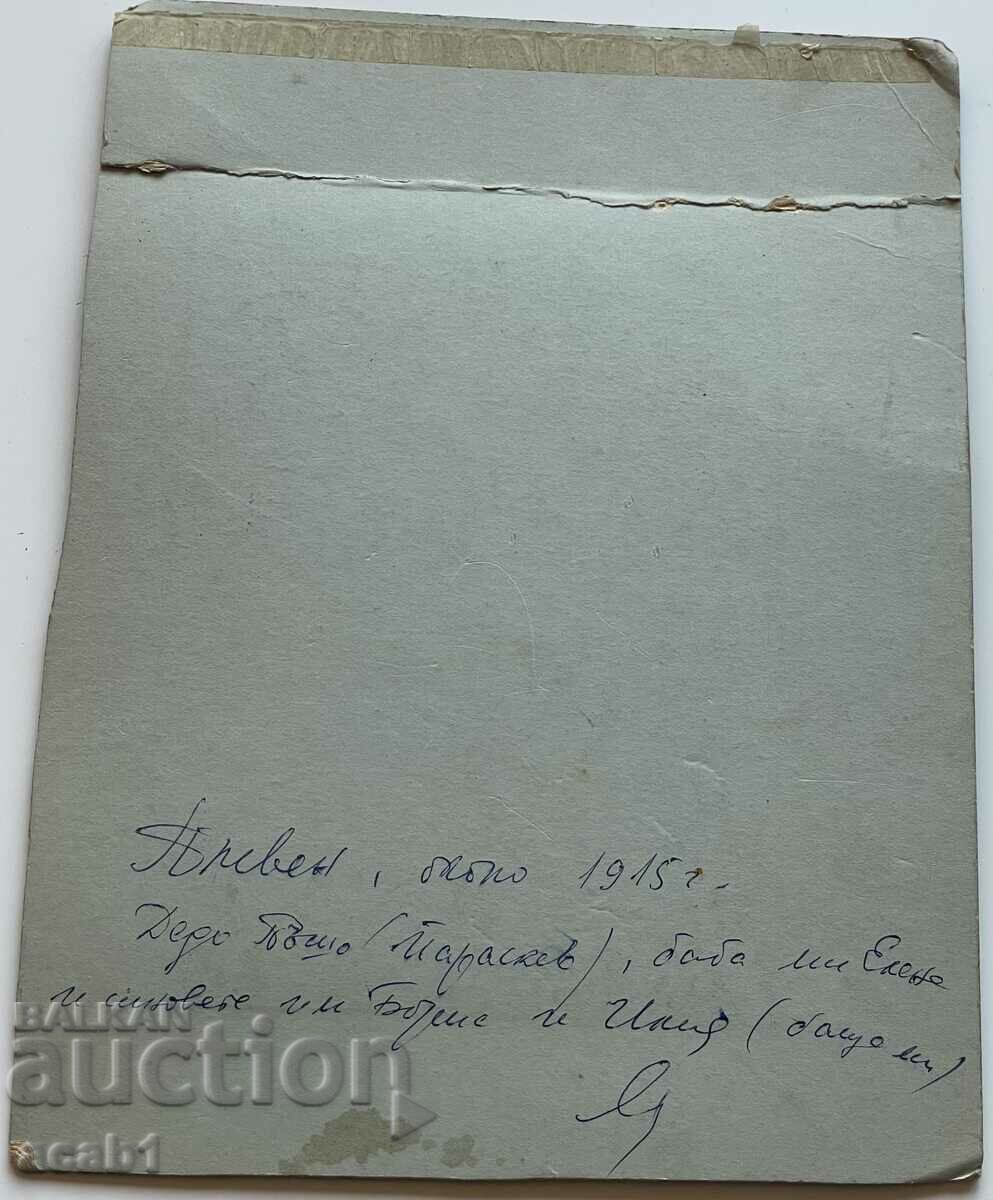 Плевен, лято 1915 г.
Дядо Пешо (Параскев), баба ми Елена
и синовете им Борис и Илия (баща ми)
BALKAN
auction
acab1